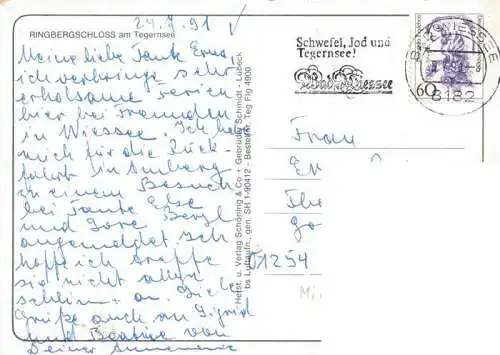 24.7.91
RINGBERGSCHLOSS am Tegernsee
Meine liebe Tante Erna,
ich verbringe sehr
erholsame Ferien
hier bei Freunden
in Wiessee. Ich hab
mich für die Rück-
fahrt in Amberg
zu einem Besuch
bei Tante Else
und Lore
angemeldet. Ich
hoffe ich treffe
sie nicht allzu
schlimm an. Viele
Grüße auch an Sigrid
und Beatrice von
Deiner Annemarie
Herst. u. Verlag Schöning & Co + Gebrüder Schmidt · Lübeck
bs Luftaufn., gen. SH 1-90412 - Bestellnr. Teg Flg 4900
Schwefel, Jod und
Tegernsee!
Bad Wiessee
WIESSEE
8182
60
Frau
O1254